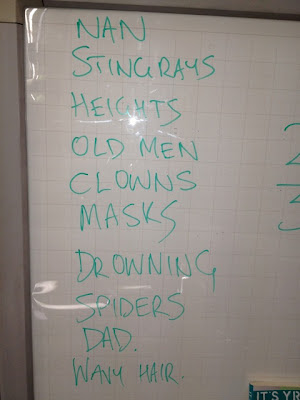 NAN
STINGRAYS
HEIGHTS
OLD MEN
CLOWNS
MASKS
DROWNING
SPIDERS
DAD.
WAVY HAIR.
IT'S YR